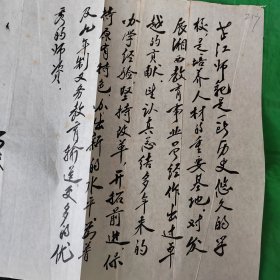 芷江师范是一所历史悠久的学
校,是培养人材的重要基地,对发
展湘西教育事业曾经作出过卓
越的贡献。望认真总结多年来的
办学经验,坚持改革,开拓前进,保
持原有特色,办出新的水平,为普
及九年制义务教育输送更多的优
秀的师资。